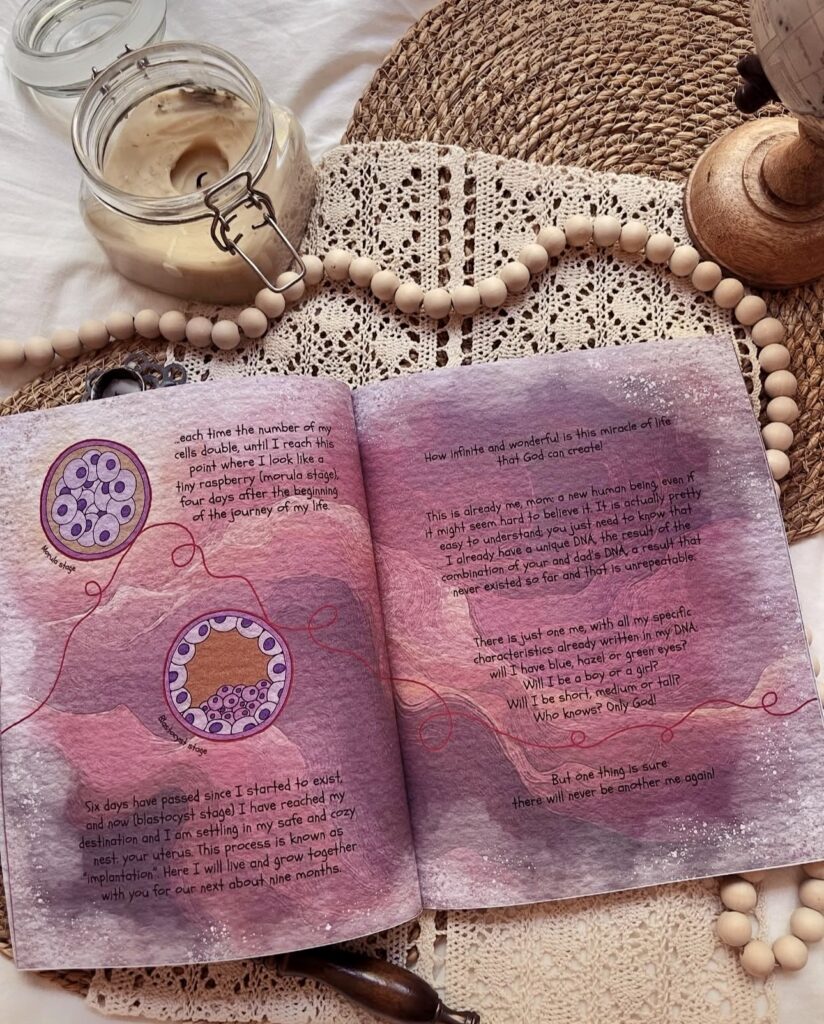 ...each time the number of my
cells double, until I reach this
point where I look like a
tiny raspberry (morula stage),
four days after the beginning
of the journey of my life.
Morula stage
Blastocyst stage
Six days have passed since I started to exist,
and now (blastocyst stage) I have reached my
destination and I am settling in my safe and cozy
nest: your uterus. This process is known as
"implantation". Here I will live and grow together
with you for our next about nine months.
How infinite and wonderful is this miracle of life
that God can create!
This is already me, mom: a new human being, even if
it might seem hard to believe it. It is actually pretty
easy to understand: you just need to know that
I already have a unique DNA, the result of the
combination of your and dad's DNA, a result that
never existed so far and that is unrepeatable.
There is just one me, with all my specific
characteristics already written in my DNA:
will I have blue, hazel or green eyes?
Will I be a boy or a girl?
Will I be short, medium or tall?
Who knows? Only God!
But one thing is sure:
there will never be another me again!